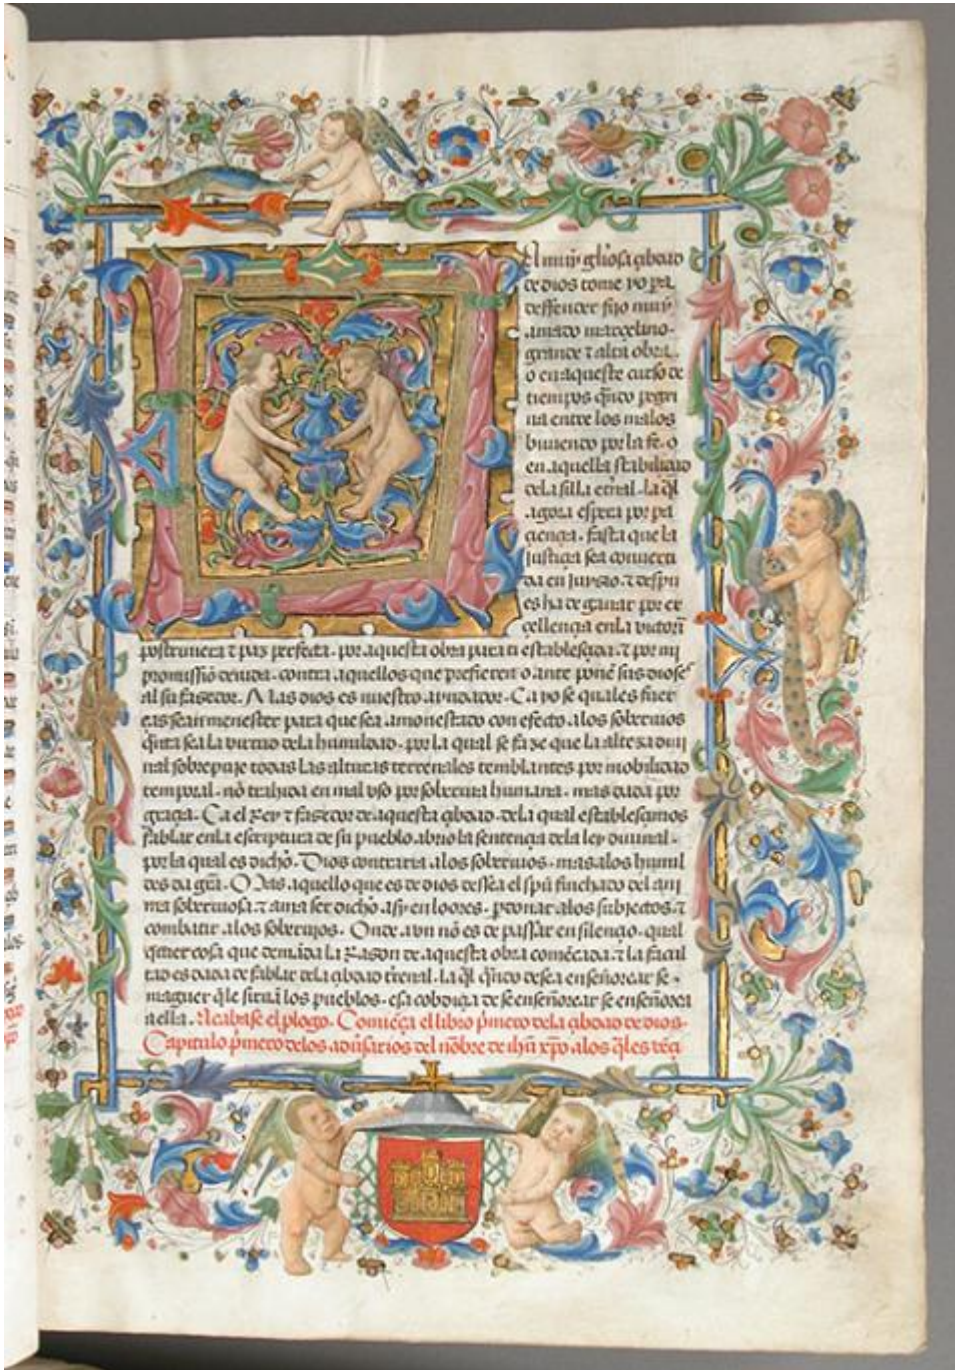 El muy gl'iosa çibdad
de dios tome yo pa
deffender fijo muy
amado marçelino.
grande τ alta obra.
o en aqueste curso de
tienpos q̃ndo pegri
na entre los malos
biuiendo por la fe. o
en aquella stabilidad
dela silla et'nal. la q̃l
agora espera por pa
çiençia. fasta que la
justiçia sea conuerti
da en juyzio. τ despu
es ha de ganar por ex
çellençia enla victori
postrimera τ paz perfecta. por aquesta obra para ti establesçida. τ por mi
promissiõ deuida. contra aquellos que prefieren o ante ponẽ sus dioses
al su fazedor. Mas dios es nuestro ayudador. Ca yo se quales fuer
ças sean menester para que sea amonestado con efecto alos soberuios
q̃nta sea la virtud dela humildad. por la qual se faze que la alteza diui
nal sobrepuje todas las alturas terrenales temblantes por mobilidad
temporal. nõ trahida en mal vso por soberuia humana. mas dada por
graçia. Ca el Rey τ fazedor de aquesta çibdad. dela qual establesçimos
fablar enla escriptura de su pueblo. abrio la sentençia dela ley diuinal.
por la qual es dicho. Dios contraria alos soberuios. mas alos humil
des da gr̃a. Mas aquello que es de dios dessea el spũ finchado del ani
ma soberuiosa. τ ama ser dicho asy en loores. perdonar alos subjectos. τ
combatir alos soberuios. Onde avn nõ es de passar en silençio. qual
quier cosa que demãda la Razon de aquesta obra comẽçada. τ la facul
tad es dada de fablar dela çibdad t'renal. la q̃l q̃ndo desea enseñorear se.
maguer q̃le siruã los pueblos. esa cobdiçia de se enseñorear se enseñorea
a ella. Acabase el plogo. Comiẽça el libro p̃mero dela çibdad de dios.
Capitulo p̃mero delos adũsarios del nõbre de ihũ xp̃o alos q̃les